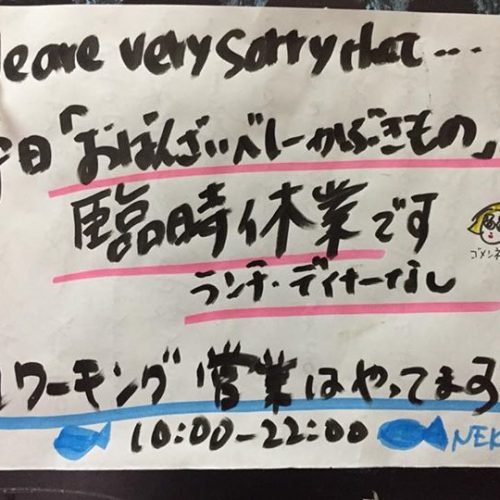 We are very sorry that...
今日「おばんざいべしーかぶきもの」
臨時休業です
ゴメンネ
ランチ・ディナーなし
ワーキング営業はやってます
10:00-22:00
NEK